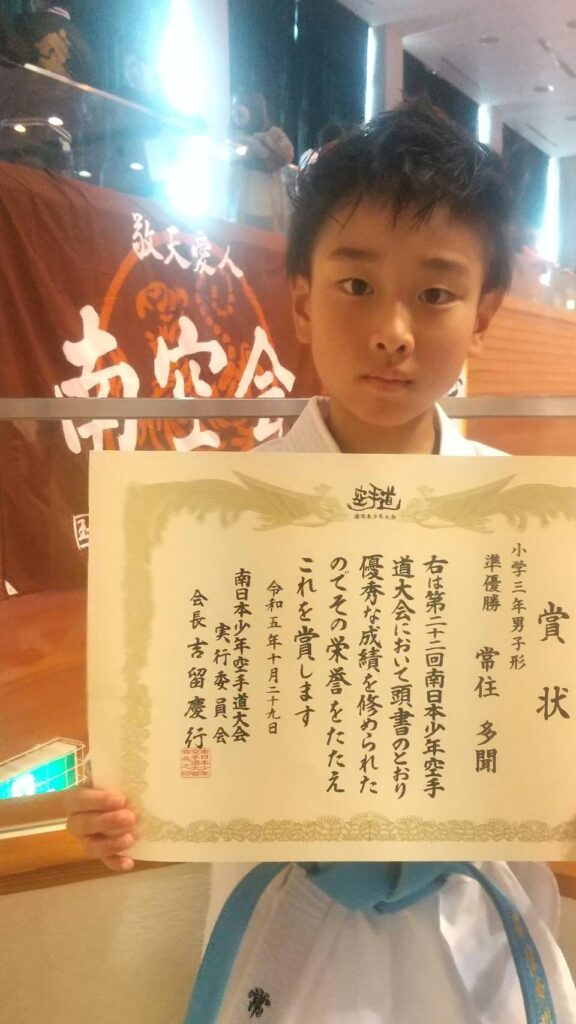 敬天愛人
南空会
空手道
南日本少年大会
賞状
小学三年男子形
準優勝 常住 多聞
右は第二十二回南日本少年空手
道大会において頭書のとおり
優秀な成績を修められた
のでその栄誉をたたえ
これを賞します
令和五年十月二十九日
南日本少年空手道大会
実行委員会
会長 吉留慶行